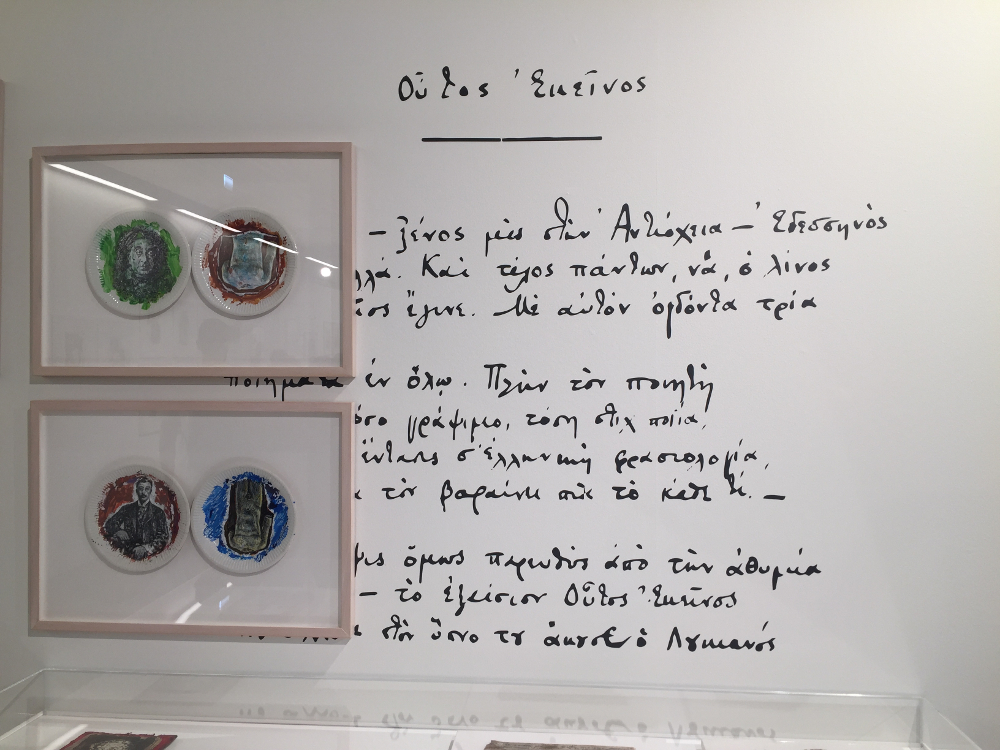 Οὗτος Ἐκεῖνος
— ξένος μὲς στὴν Ἀντιόχεια — Ἐδεσσηνὸς
λλά. Καὶ τέλος πάντων, νά, ὁ λίνος
ἔγινε. Μὲ αὐτὸν ὀγδόντα τρία
ποιήματα ἐν ὅλῳ. Πλὴν τὸν ποιητὴ
όσο γράψιμο, τόση στιχοποιΐα,
ἔντασις σ' ἑλληνικὴ φρασιολογία,
τὸν βαραίνει πιὰ τὸ κάθε τί. —
ψις ὅμως παρευθὺς ἀπὸ τὴν ἀθυμία
— τὸ ἐξαίσιον Οὗτος Ἐκεῖνος
στὸν ὕπνο του ἄκουσε ὁ Λουκιανός